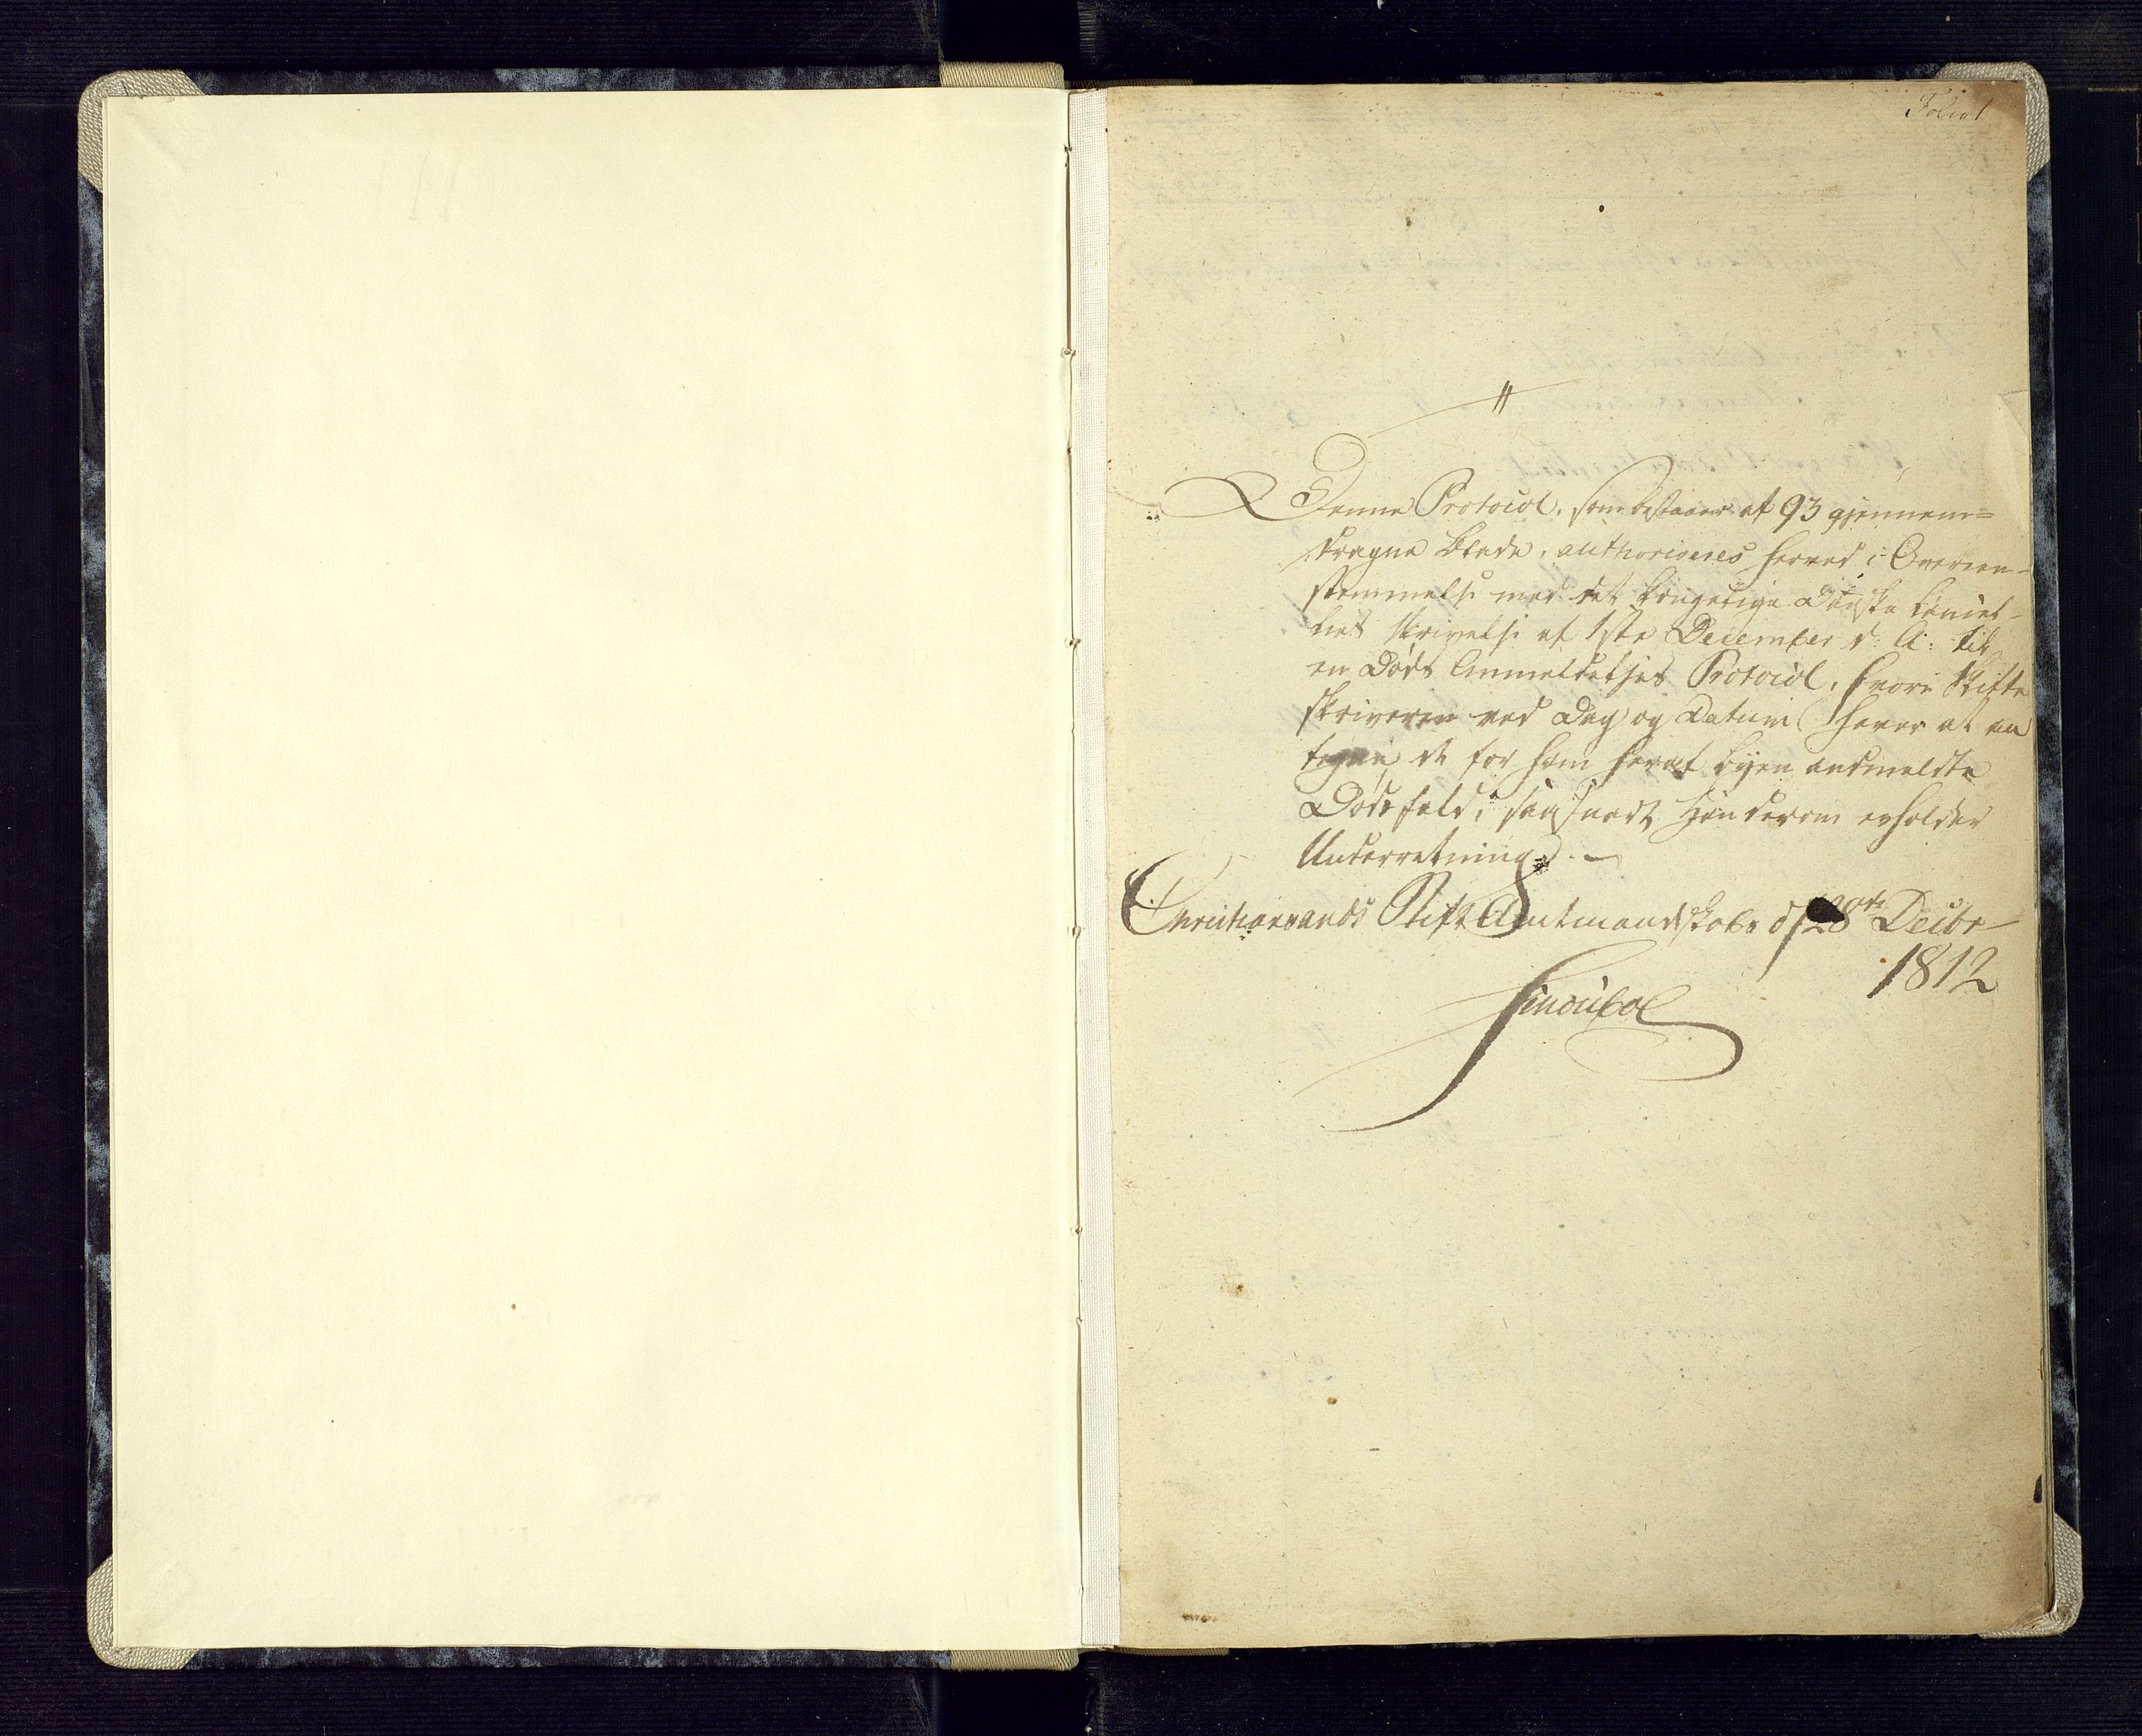 Folio 1
Denne Protocol, som bestaaer af 93 gjennem=
dragne Blade, authoriseres herved i Overeen-
stemmelse med det kongelige Danske Cancel-
lies Skrivelse af 1ste December d. A: til
en Døds Anmeldelses Protocol, hvori Skifte
skriveren ved Dag og Datum haver at an
tegne de for ham heraf Byen anmeldte
Dødsfald, saasnart Han derom erholder
Underretning. -
Christiansands Stift Amtmandskab d 28de Decbr
1812